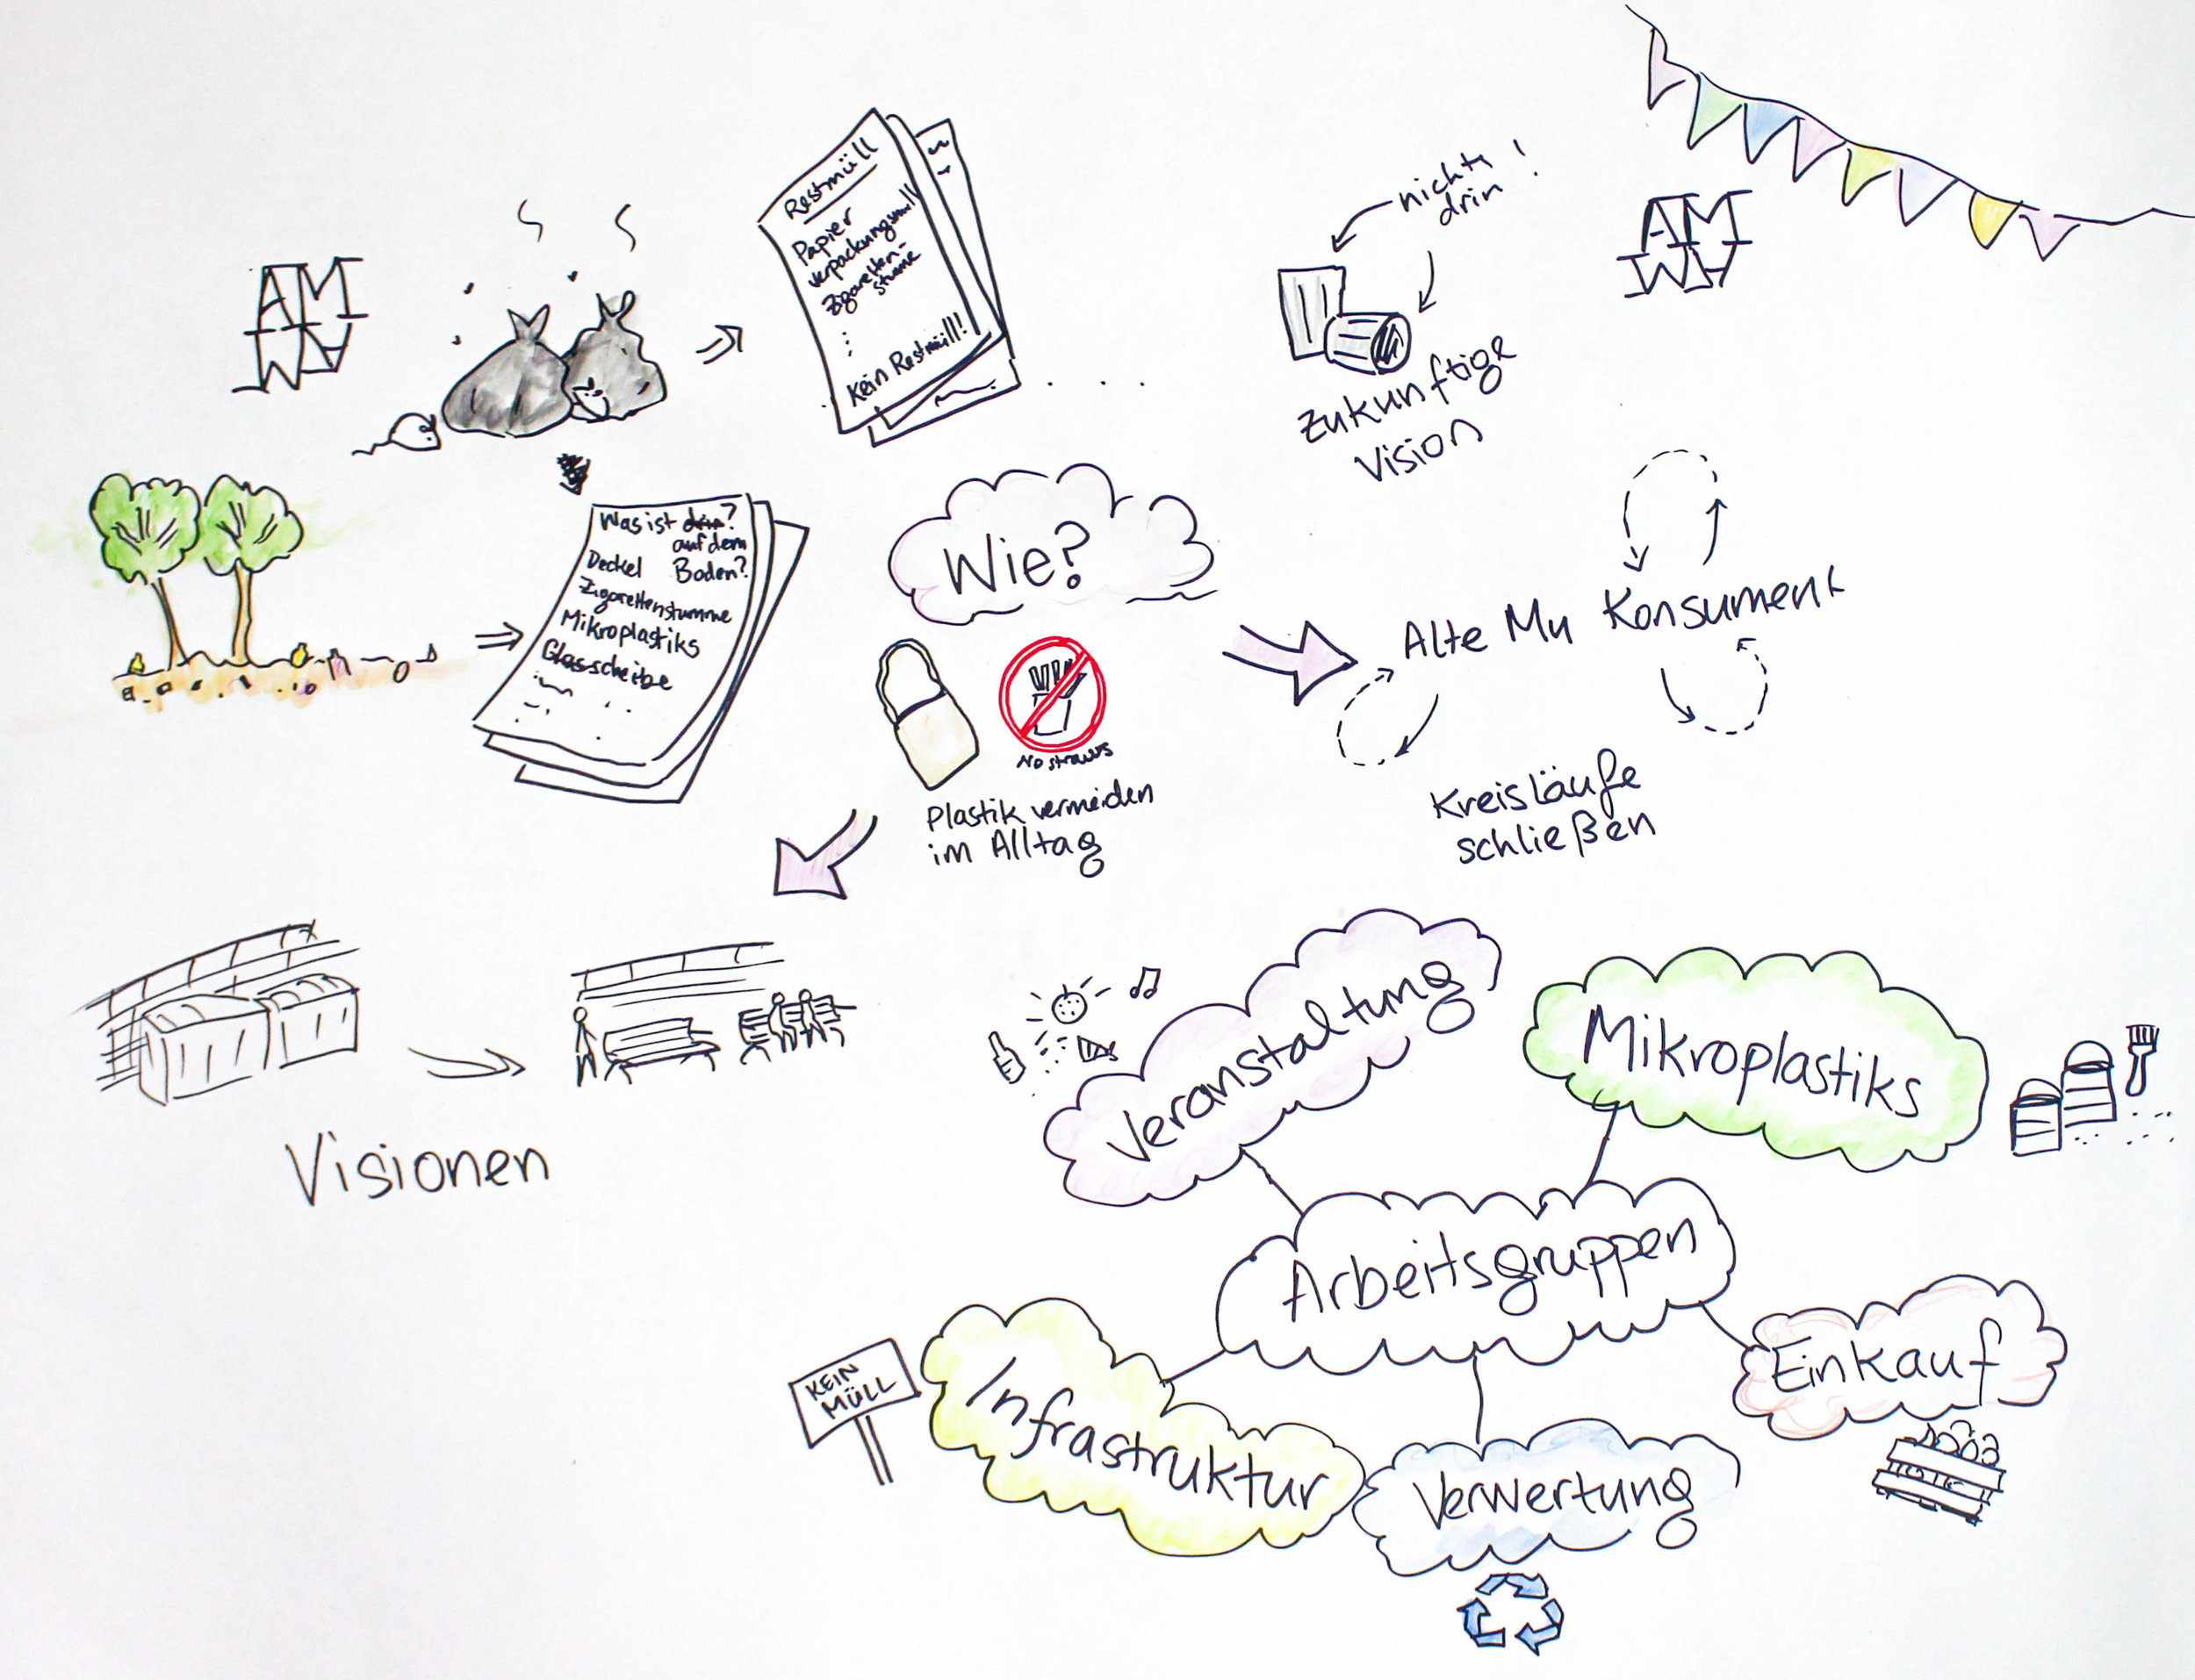 AM
WA
Restmüll
Papier
Verpackungsmüll
Zigaretten-
stume
Kein Restmüll!
nichts
drin!
Zukunftige
Vision
AM
WA
Was ist drin?
auf dem
Deckel Boden?
Zigarettenstumme
Mikroplastiks
Glasscheibe
Wie?
No straws
Plastik vermeiden
im Alltag
Alte Mu Konsument
Kreisläufe
schließen
Visionen
Veranstaltung
Mikroplastiks
Arbeitsgruppen
Einkauf
KEIN
MÜLL
Infrastruktur
Verwertung